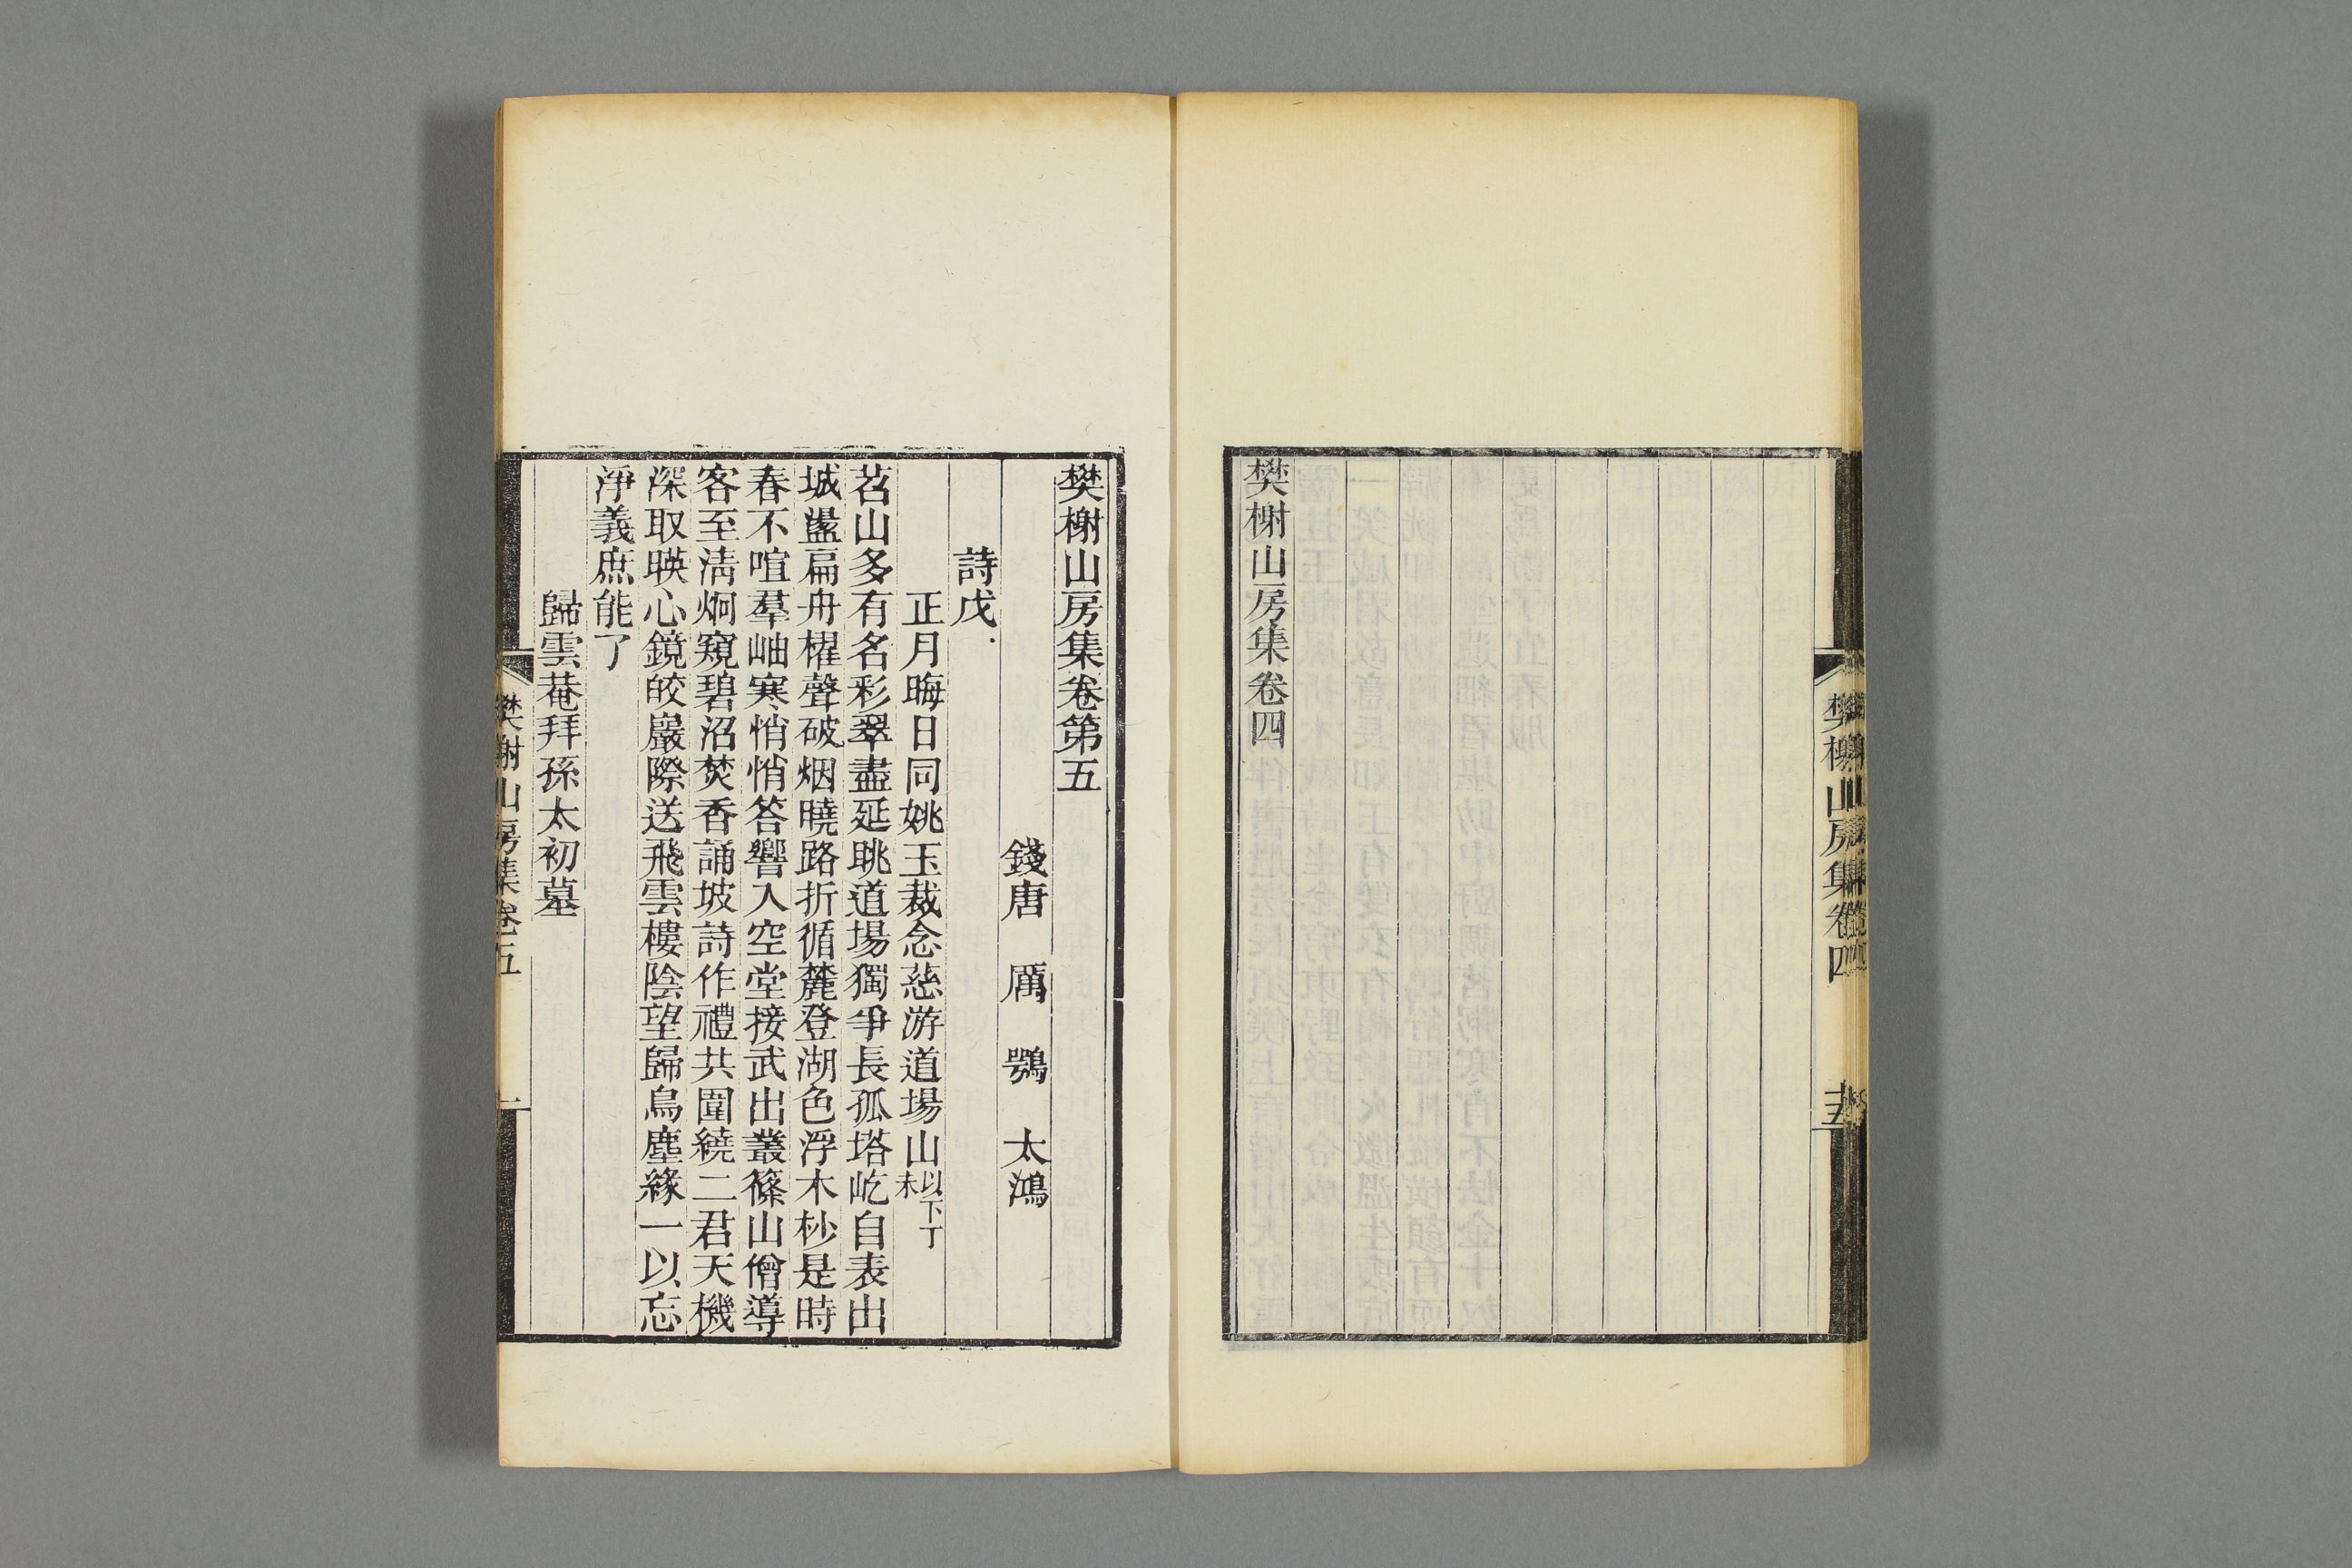 樊榭山房集卷四
十五
樊榭山房集卷四
樊榭山房集卷第五
錢唐 厲 鶚 太鴻
詩戊
正月晦日同姚玉裁念慈游道場山以下丁未
苕山多有名彩翠盡延眺道場獨爭長孤塔屹自表出
城盪扁舟櫂聲破烟曉路折循麓登湖色浮木杪是時
春不喧羣岫寒悄悄答響入空堂接武出叢篠山僧導
客至淸炯窺碧沼焚香誦坡詩作禮共圍繞二君天機
深取暎心鏡皎巖際送飛雲樓陰望歸鳥塵緣一以忘
淨義庶能了
歸雲菴拜孫太初墓
樊榭山房集卷五
一